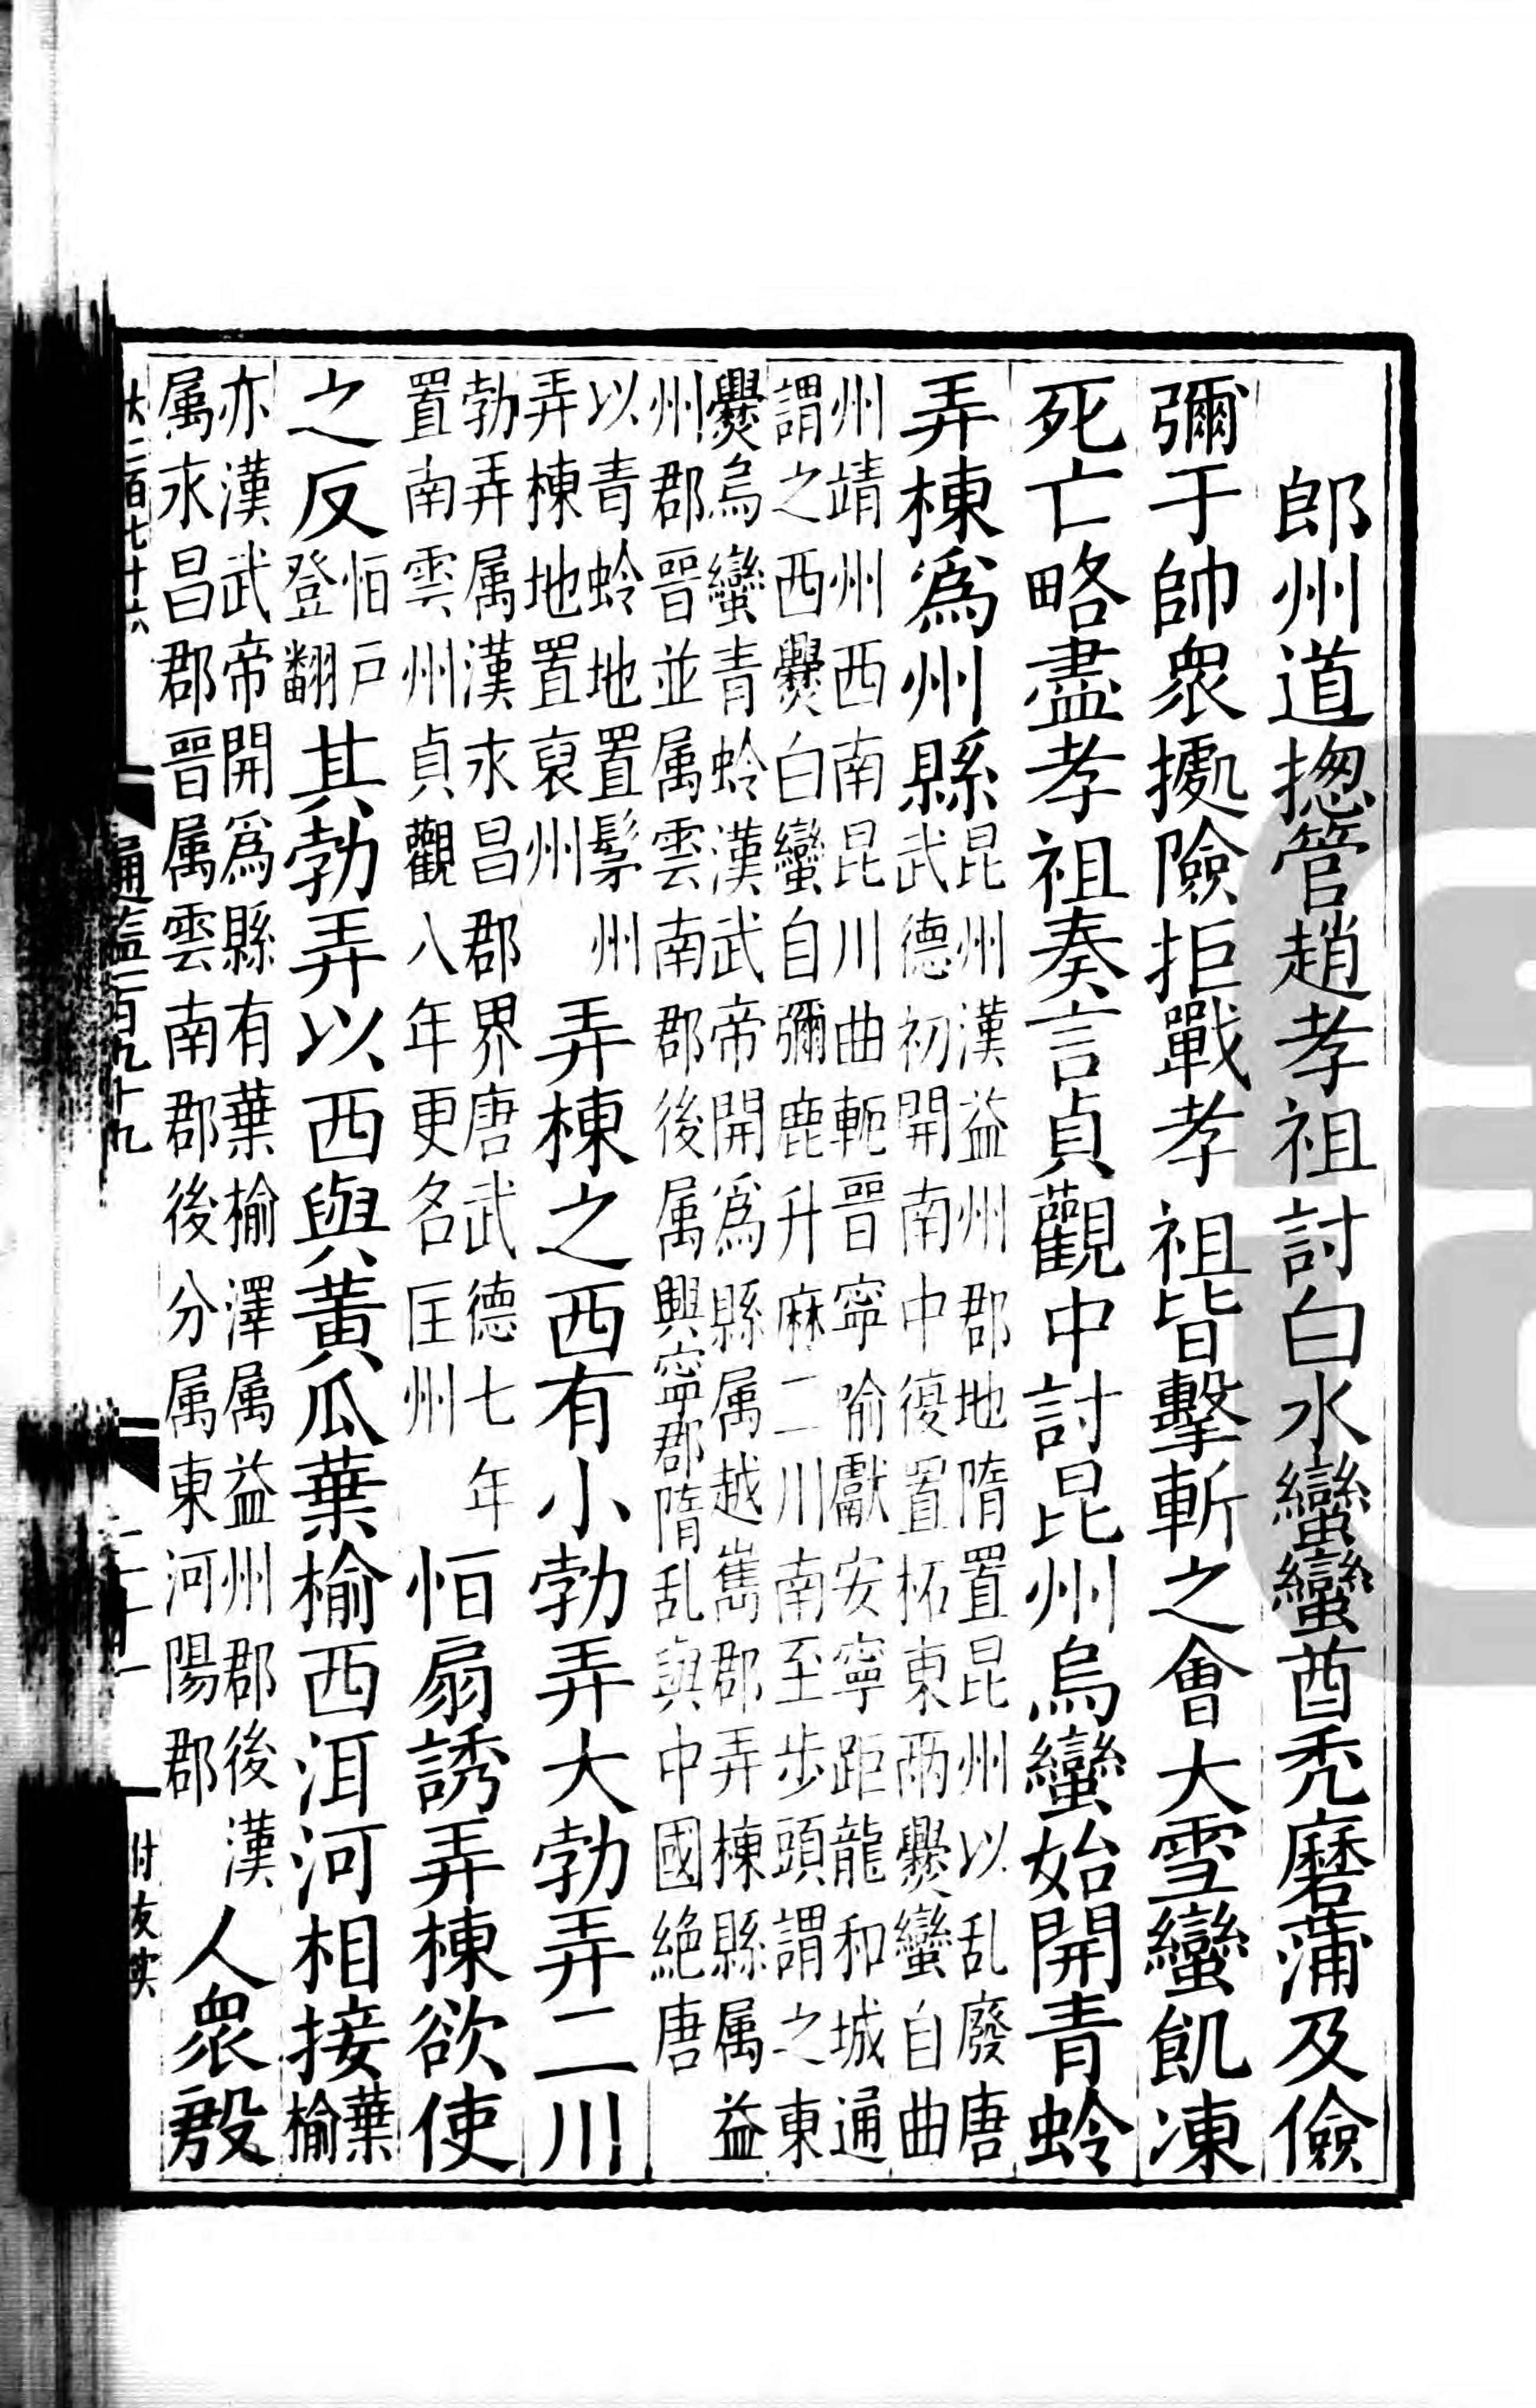 郎州道揔管趙孝祖討白水蠻蠻酋禿磨蒲及儉
彌于帥衆據險拒戰孝祖皆擊斬之會大雪蠻飢凍
死亡略盡孝祖奏言貞觀中討昆州烏蠻始開青蛉
弄棟爲州縣
昆州漢益州郡地隋置昆州以乱廢唐
武德初開南中復置柘東兩爨蠻自曲
州靖州西南昆川曲軛晉寧喻獻安寧距龍和城通
謂之西爨白蠻自彌鹿升麻二川南至步頭謂之東
爨烏蠻青蛉漢武帝開爲縣属越嶲郡弄棟縣属益
州郡晉並属雲南郡後属興寧郡隋乱與中國絶唐
以青蛉地置髳州
弄棟地置裒州
弄棟之西有小勃弄大勃弄二川
勃弄属漢永昌郡界唐武德七年
置南雲州貞觀八年更名匡州
恒扇誘弄棟欲使
之反
恒戸
登翻
其勃弄以西與黃瓜葉榆西洱河相接
葉
榆
亦漢武帝開爲縣有葉榆澤属益州郡後漢
属永昌郡晉属雲南郡後分属東河陽郡
人衆殷
通鑑一百九十九
付友实